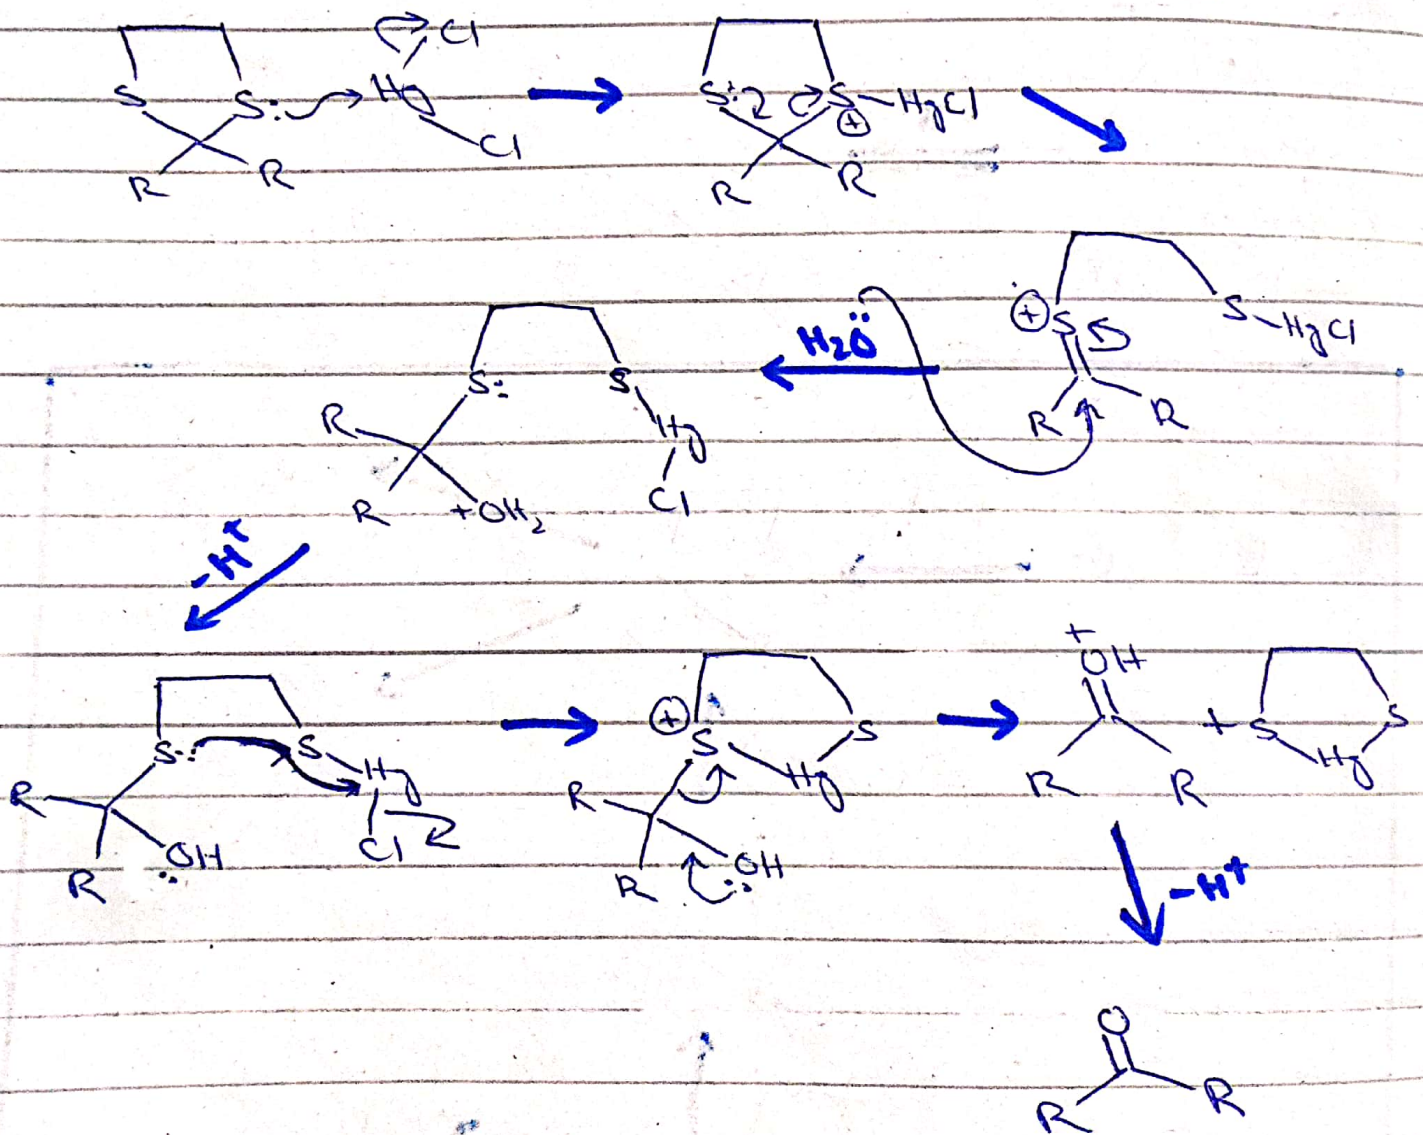 S S: Hg Cl Cl R R
S: S ⊕ HgCl R R
⊕ S S HgCl R R
H₂Ö
S: S Hg Cl R R +OH₂
-H⁺
S: S Hg Cl R R OH
⊕ S S Hg R R OH
+ OH R R + S S Hg
-H⁺
O R R